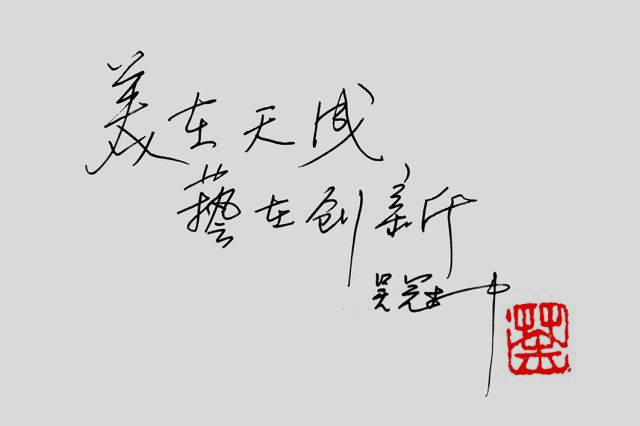 美在天成
藝在创新
吴冠中
荼